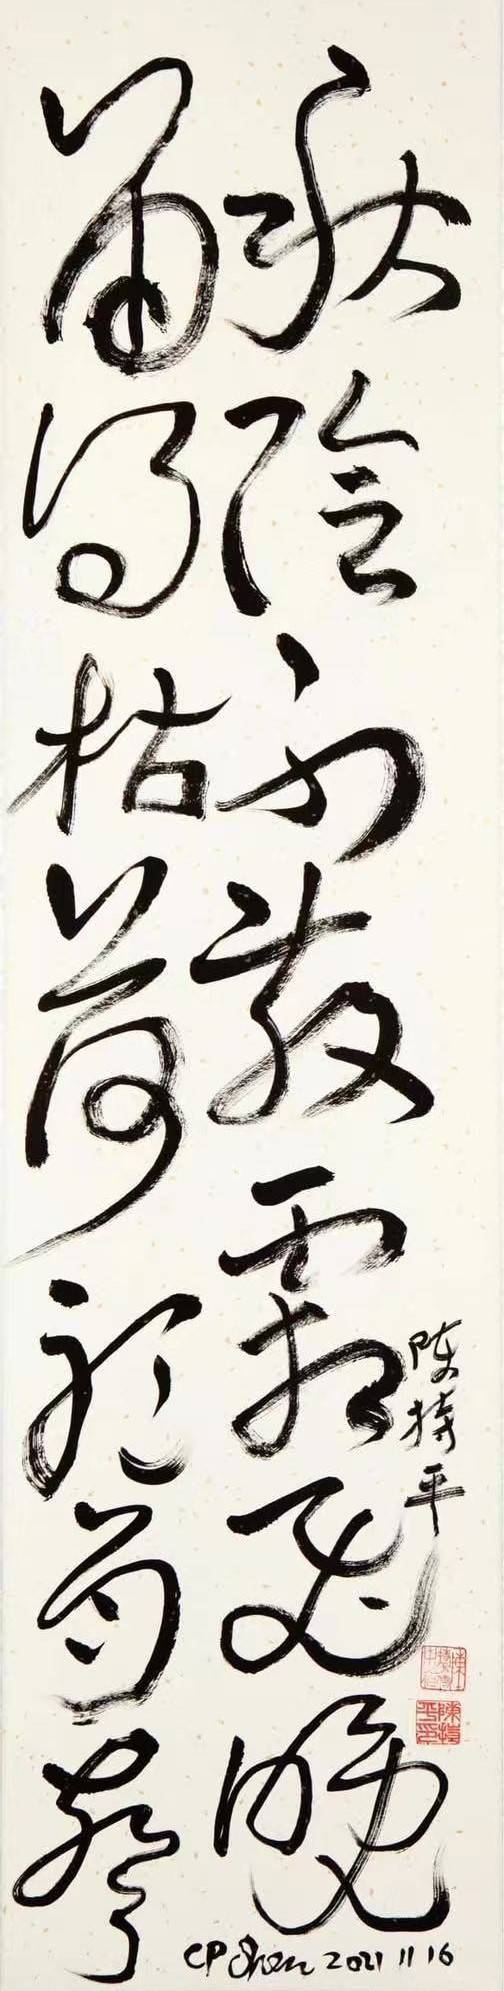 秋陰不散霜飛晚
留得枯荷聽雨聲
陈持平
陳持平印
CP Chen 2021 11 16